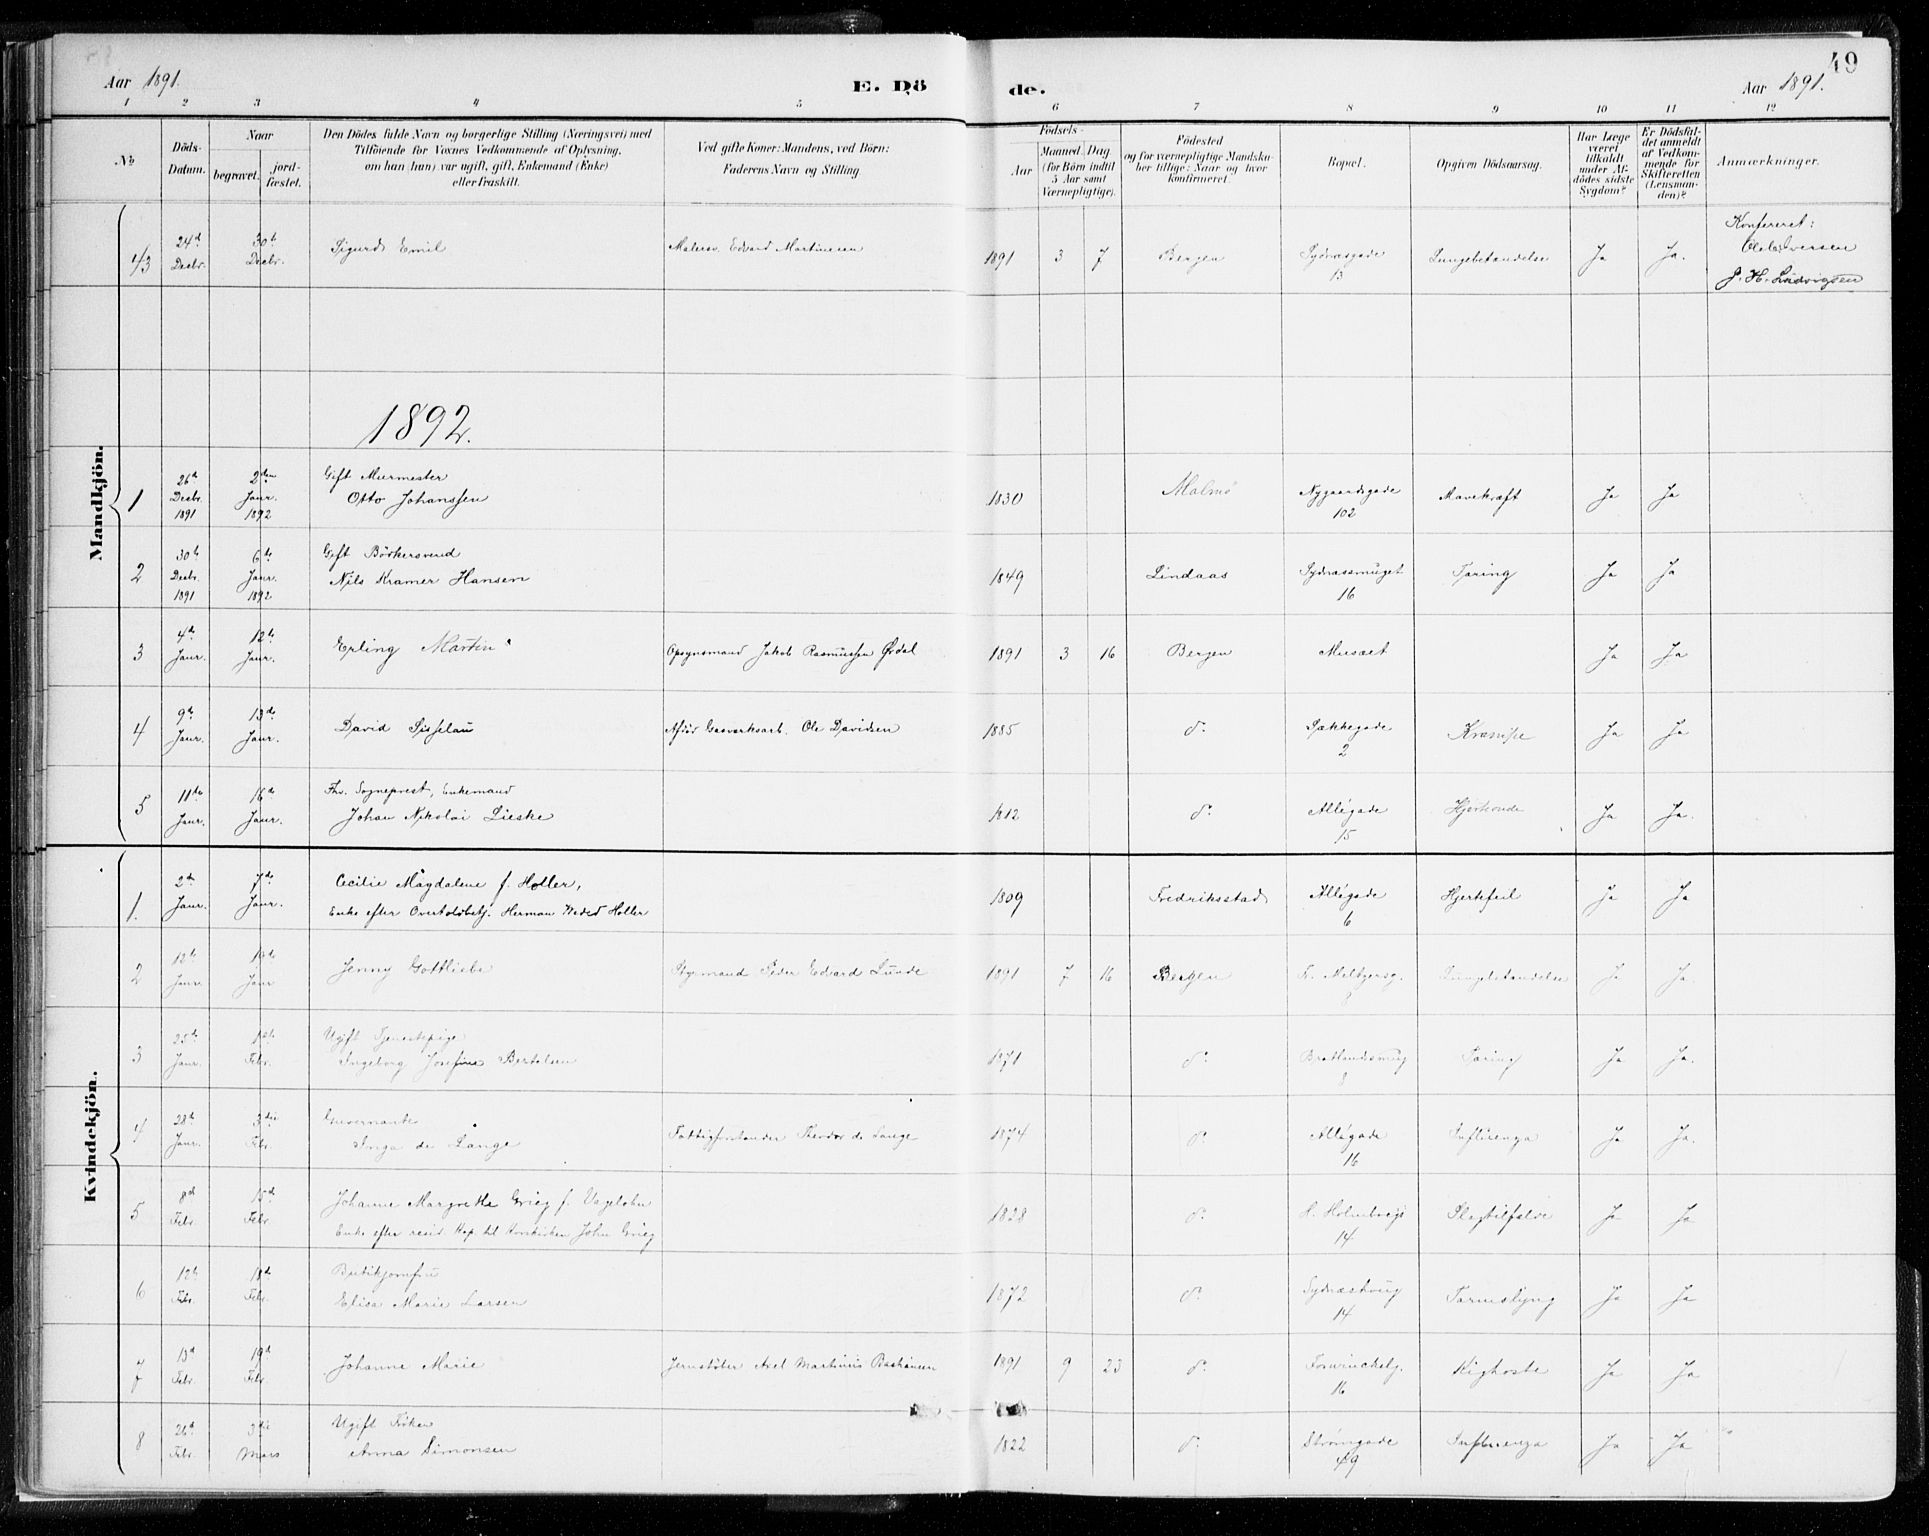 49
Aar 1891.
E. Dö
de.
Aar 1891.
1 2 3 4 5 6 7 8 9 10 11 12
No
Döds-
Datum.
Naar
begravet.
jord-
fæstet.
Den Dödes fulde Navn og borgerlige Stilling (Næringsvei) med
Tilföiende for Voxnes Vedkommende af Oplysning,
om han (hun) var ugift, gift, Enkemand (Enke)
eller fraskilt.
Ved gifte Koner: Mandens, ved Börn:
Faderens Navn og Stilling
Födsels-
Aar
Maaned. Dag
(for Börn indtil
5 Aar samt
Værnepligtige).
Födested
og for værnepligtige Mandska-
ber tillige: Naar og hvor
konfirmeret.
Bopæl.
Opgiven Dödsaarsag.
Har Læge
været
tilkaldt
under Af-
dödes sidste
Sygdom?
Er Dödsfal-
det anmeldt
af Vedkom-
mende for
Skifteretten
(Lensman-
den)?
Anmærkninger.
Mandkjön.
43 24d Decbr. 30te Decbr. Sigurd Emil Malersv. Edvard Martinesen 1891 3 7 Bergen Sydnæsgade 13 Lungebetændelse Ja Ja.
Konfereret:
Ole Iversen
J. H. Ludvigsen
1892.
1 26de Decbr. 1891 2den Janr. 1892 Gift Murmester
Otto Johanssen 1830 Malmö Nygaardsgade 102 Mavekræft Ja Ja
2 30te Decbr. 1891 6te Janr. 1892 Gift Bödkersvend
Nils Kramer Hansen 1849 Lindaas Sydnæssmuget 16 Tæring Ja Ja
3 4de Janr. 12te Janr. Erling Martin Opsynsmand Jakob Rasmussen Ørdal 1891 3 16 Bergen Musæet Ja Ja
4 9de Janr. 13de Janr. David Afdöd Gasverksarb. Ole Davidsen 1885 do Sækkegade 2 Krampe Ja Ja
5 11te Janr. 16de Janr. Fhv. Sogneprest, Enkemand
Johan Nikolai Lieske 1812 do Allégade 15 Hjerteonde Ja Ja.
Kvindekjön.
1. 2de Janr. 7de Janr. Cecilie Magdalene f. Holler,
Enke efter Overtoldbetj. Herman Wedel Holler 1809 Fredriksstad Allégade 6 Hjertefeil Ja Ja
2 12te Janr. Janr Jenny Gottliebe Styrmand Peder Edvard Lunde 1891 7 16 Bergen Fr. Meltzersg. 8 Lungebetændelse Ja Ja.
3 25de Janr. 1ste Febr. Ugift Tjenestepige
Ingeborg Josefine Bertelsen 1871 do Bratlandsmug 8 Tæring Ja Ja.
4 28de Janr. 3die Febr. Guvernante
Inga de Lange Fattigforstander Theodor de Lange 1874 do Allégade 16 Influenza Ja Ja.
5 8d Febr. 15d Febr. Johanne Margrethe Grieg f. Vogelsohn
Enke efter resid. Kap. til Korskirken John Grieg 1828 do H. Holmboegt 14 Slagtilfælde Ja Ja
6 12te Febr. 18d Febr. Butikjomfru
Elisa Marie Larsen 1872 do Sydnæstvug 14 Tarmslyng Ja Ja
7 13d Febr. 19d Febr. Johanne Marie Jernstöber Axel Martinus Bastiansen 1891 9 23 do Foswinckelg. 16 Kighoste Ja Ja
8 26d Febr. 3die Mars Ugift Fröken
Anna Simonsen 1822 do Strömgade 49 Influenza Ja Ja